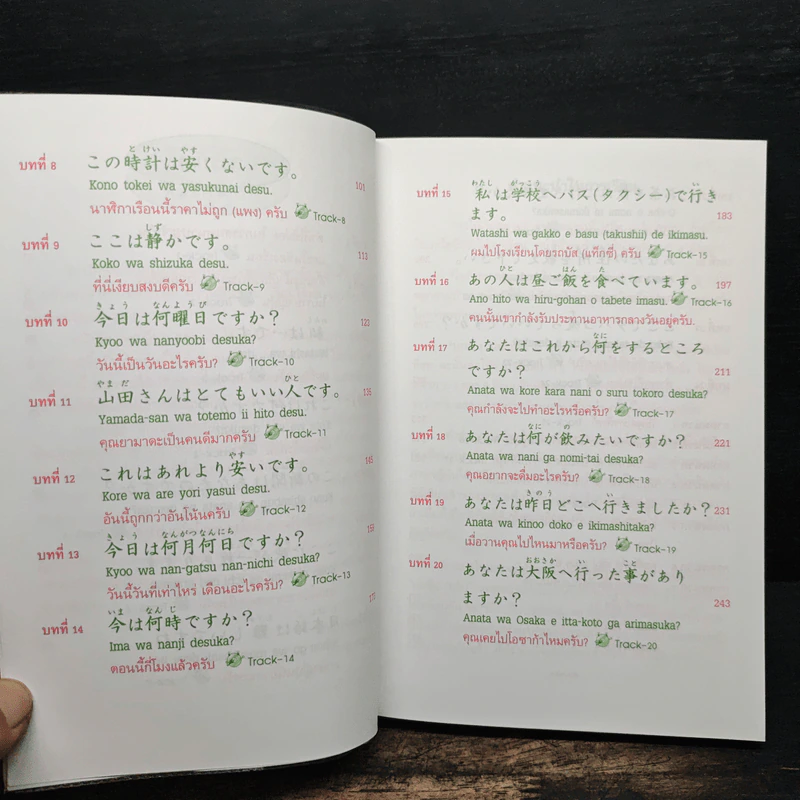 บทที่ 8 この時計は安くないです。
Kono tokei wa yasukunai desu. 101
นาฬิกาเรือนนี้ราคาไม่ถูก (แพง) ครับ Track-8
บทที่ 9 ここは静かです。
Koko wa shizuka desu. 113
ที่นี่เงียบสงบดีครับ Track-9
บทที่ 10 今日は何曜日ですか?
Kyoo wa nanyoobi desuka? 123
วันนี้เป็นวันอะไรครับ? Track-10
บทที่ 11 山田さんはとてもいい人です。
Yamada-san wa totemo ii hito desu. 136
คุณยามาดะเป็นคนดีมากครับ Track-11
บทที่ 12 これはあれより安いです。
Kore wa are yori yasui desu. 145
อันนี้ถูกกว่าอันโน้นครับ Track-12
บทที่ 13 今日は何月何日ですか?
Kyoo wa nan-gatsu nan-nichi desuka?
วันนี้วันที่เท่าไหร่ เดือนอะไรครับ? Track-13
บทที่ 14 今は何時ですか?
Ima wa nanji desuka?
ตอนนี้กี่โมงแล้วครับ Track-14
บทที่ 15 私は学校へバス(タクシー)で行き
ます。 183
Watashi wa gakko e basu (takushii) de ikimasu.
ผมไปโรงเรียนโดยรถบัส (แท็กซี่) ครับ Track-15
บทที่ 16 あの人は昼ご飯を食べています。 197
Ano hito wa hiru-gohan o tabete imasu. Track-16
คนนั้นเขากำลังรับประทานอาหารกลางวันอยู่ครับ.
บทที่ 17 あなたはこれから何をするところ
ですか? 211
Anata wa kore kara nani o suru tokoro desuka?
คุณกำลังจะไปทำอะไรหรือครับ? Track-17
บทที่ 18 あなたは何が飲みたいですか? 221
Anata wa nani ga nomi-tai desuka?
คุณอยากจะดื่มอะไรครับ? Track-18
บทที่ 19 あなたは昨日どこへ行きましたか? 231
Anata wa kinoo doko e ikimashitaka?
เมื่อวานคุณไปไหนมาหรือครับ? Track-19
บทที่ 20 あなたは大阪へ行った事があり
ますか? 243
Anata wa Osaka e itta-koto ga arimasuka?
คุณเคยไปโอซาก้าไหมครับ? Track-20